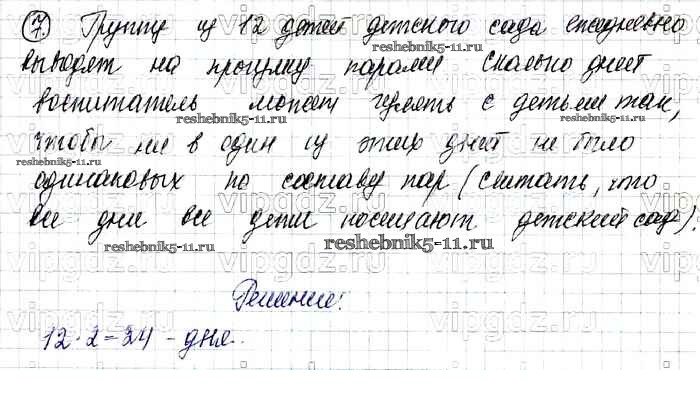 7. Группу из 12 детей детского сада ежедневно
выводят на прогулку парами Сколько дней
воспитатель может гулять с детьми так,
чтобы ни в один из этих дней не было
одинаковых по составу пар (считать, что
все дни все дети посещают детский сад)?
Решение:
12·2=24 - дня.
reshebnik5-11.ru
reshebnik5-11.ru
reshebnik5-11.ru
reshebnik5-11.ru
reshebnik5-11.ru
reshebnik5-11.ru
vipgdz.ru